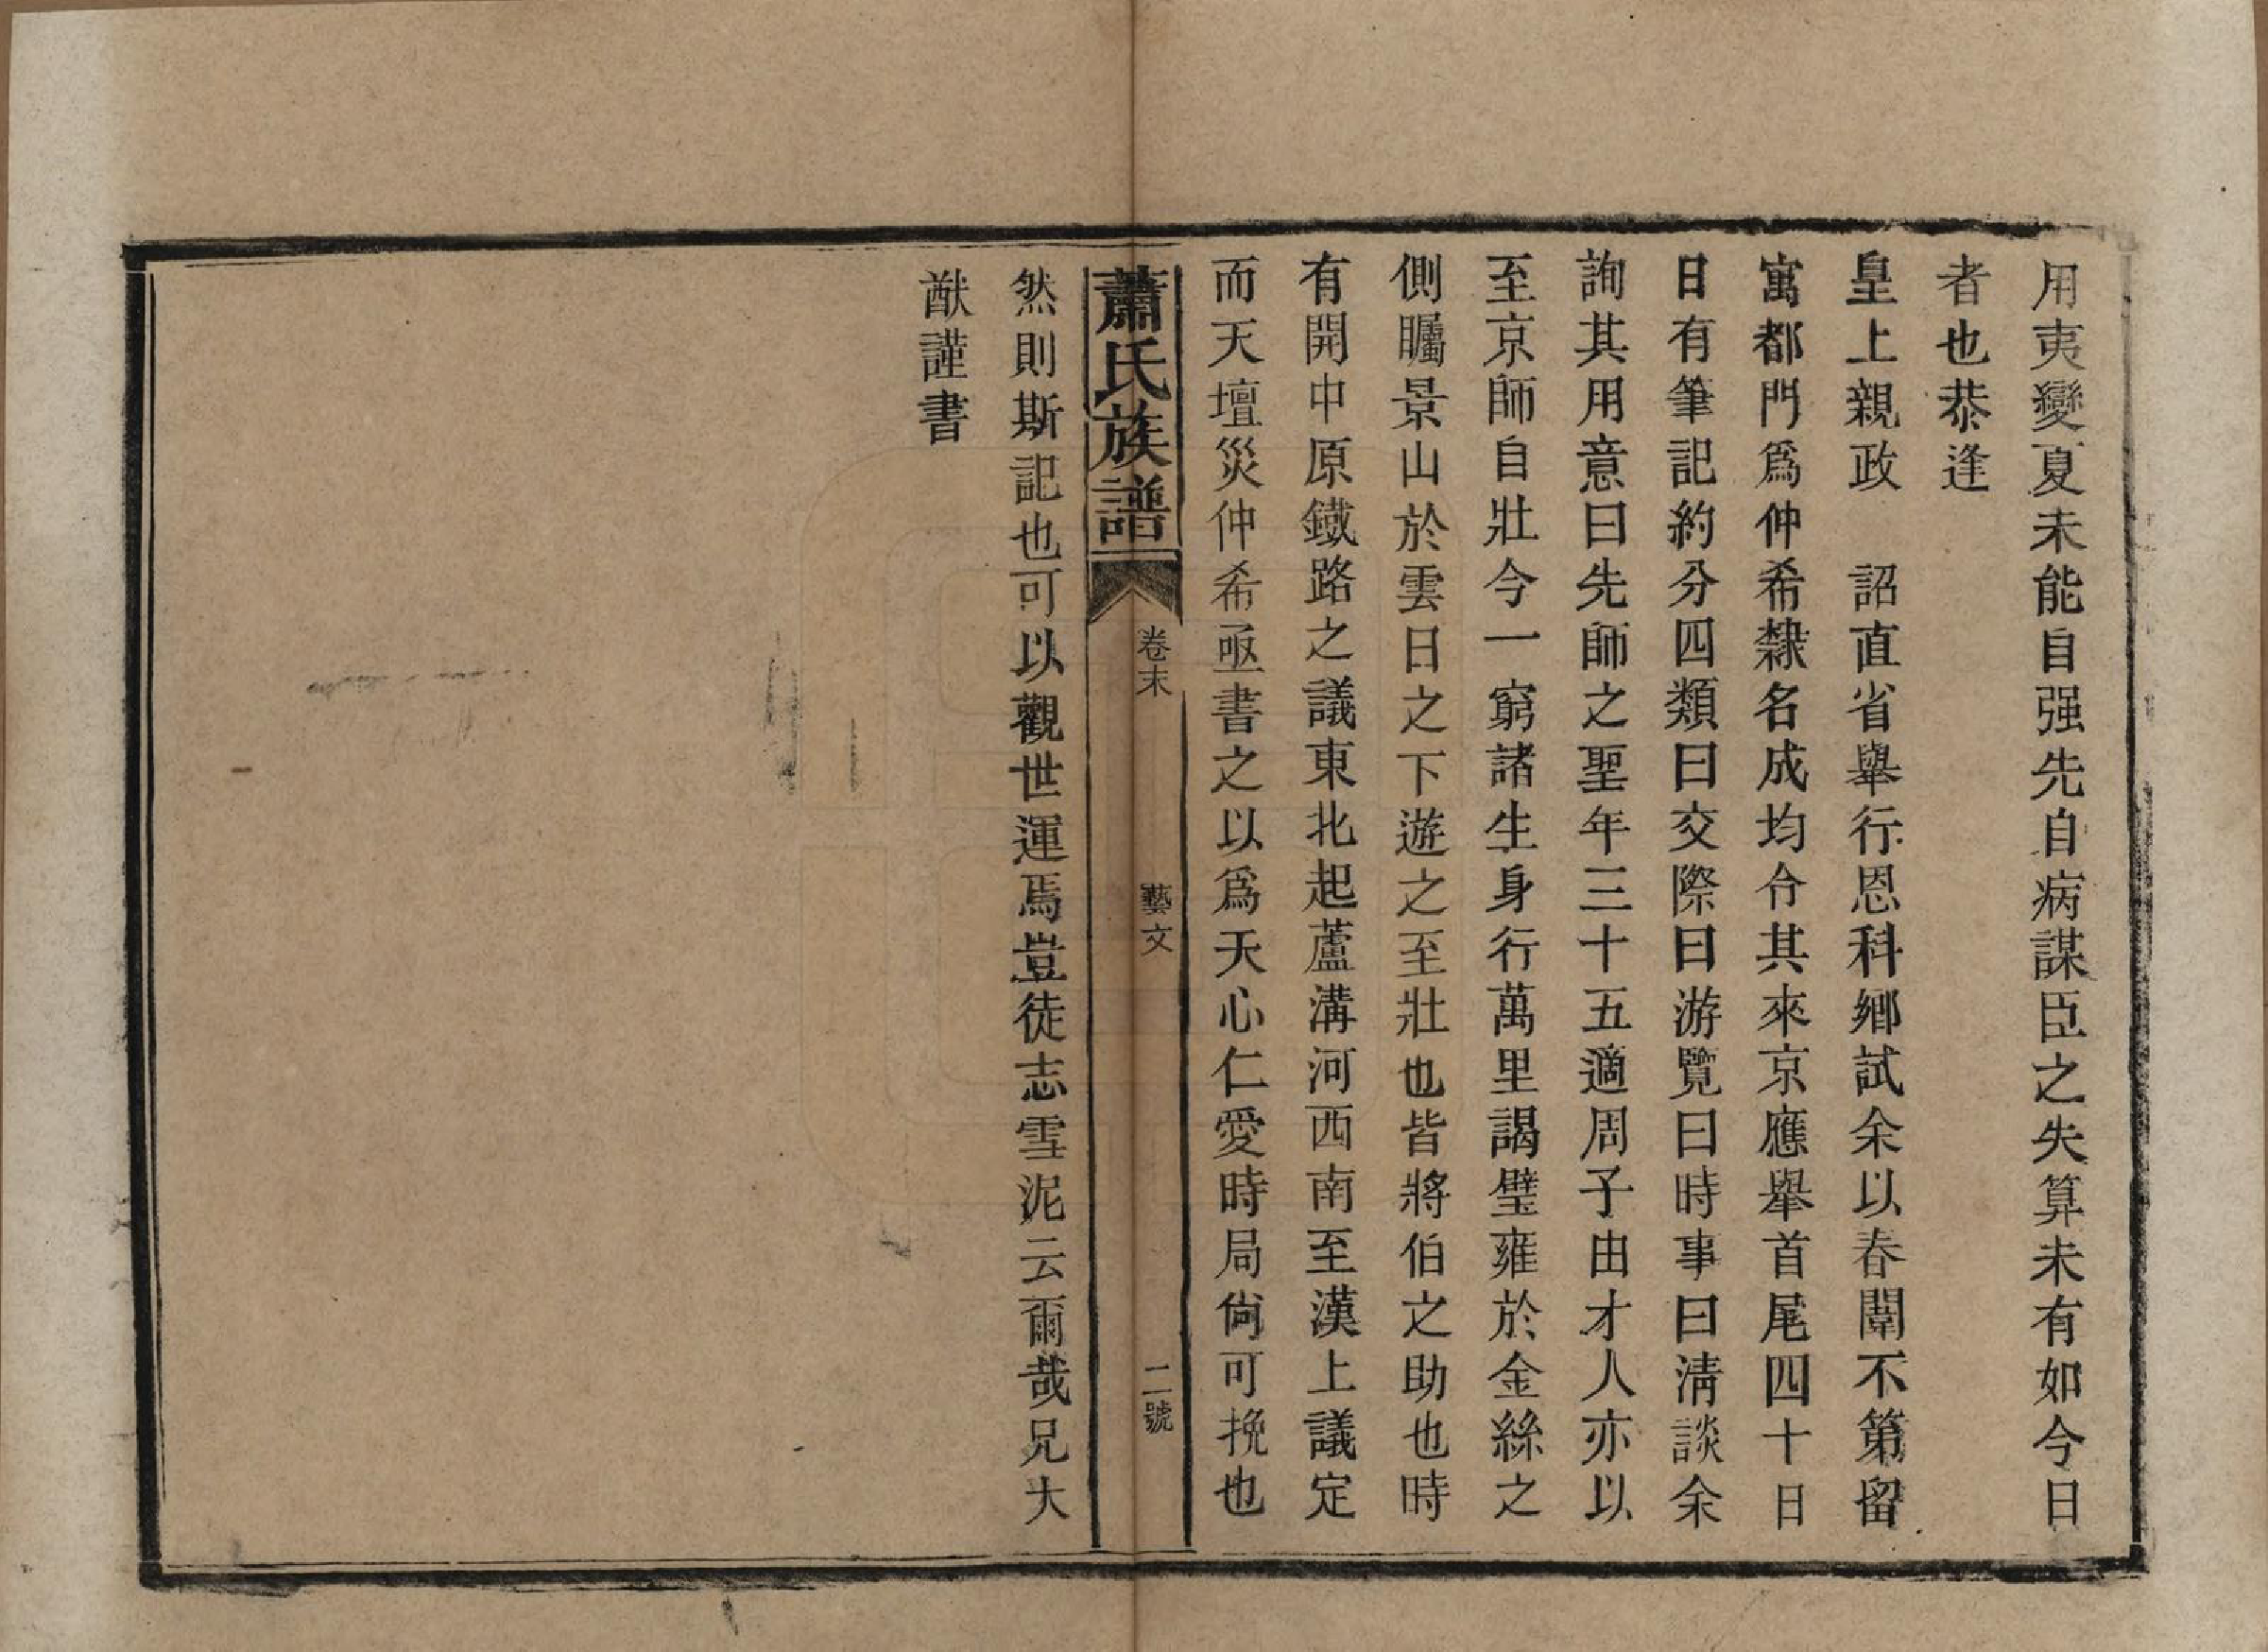 用夷變夏未能自强先自病謀臣之失算未有如今日
者也恭逢
皇上親政　詔直省舉行恩科鄉試余以春闈不第留
寓都門爲仲希隸名成均令其來京應舉首尾四十日
日有筆記約分四類曰交際曰游覽曰時事曰清談余
詢其用意曰先師之聖年三十五適周子由才人亦以
至京師自壯今一窮諸生身行萬里謁璧雍於金絲之
側矚景山於雲日之下遊之至壯也皆將伯之助也時
有開中原鐵路之議東北起蘆溝河西南至漢上議定
而天壇災仲希亟書之以爲天心仁愛時局尙可挽也
蕭氏族譜
卷末
藝文
二號
然則斯記也可以觀世運焉豈徒志雪泥云爾哉兄大
猷謹書